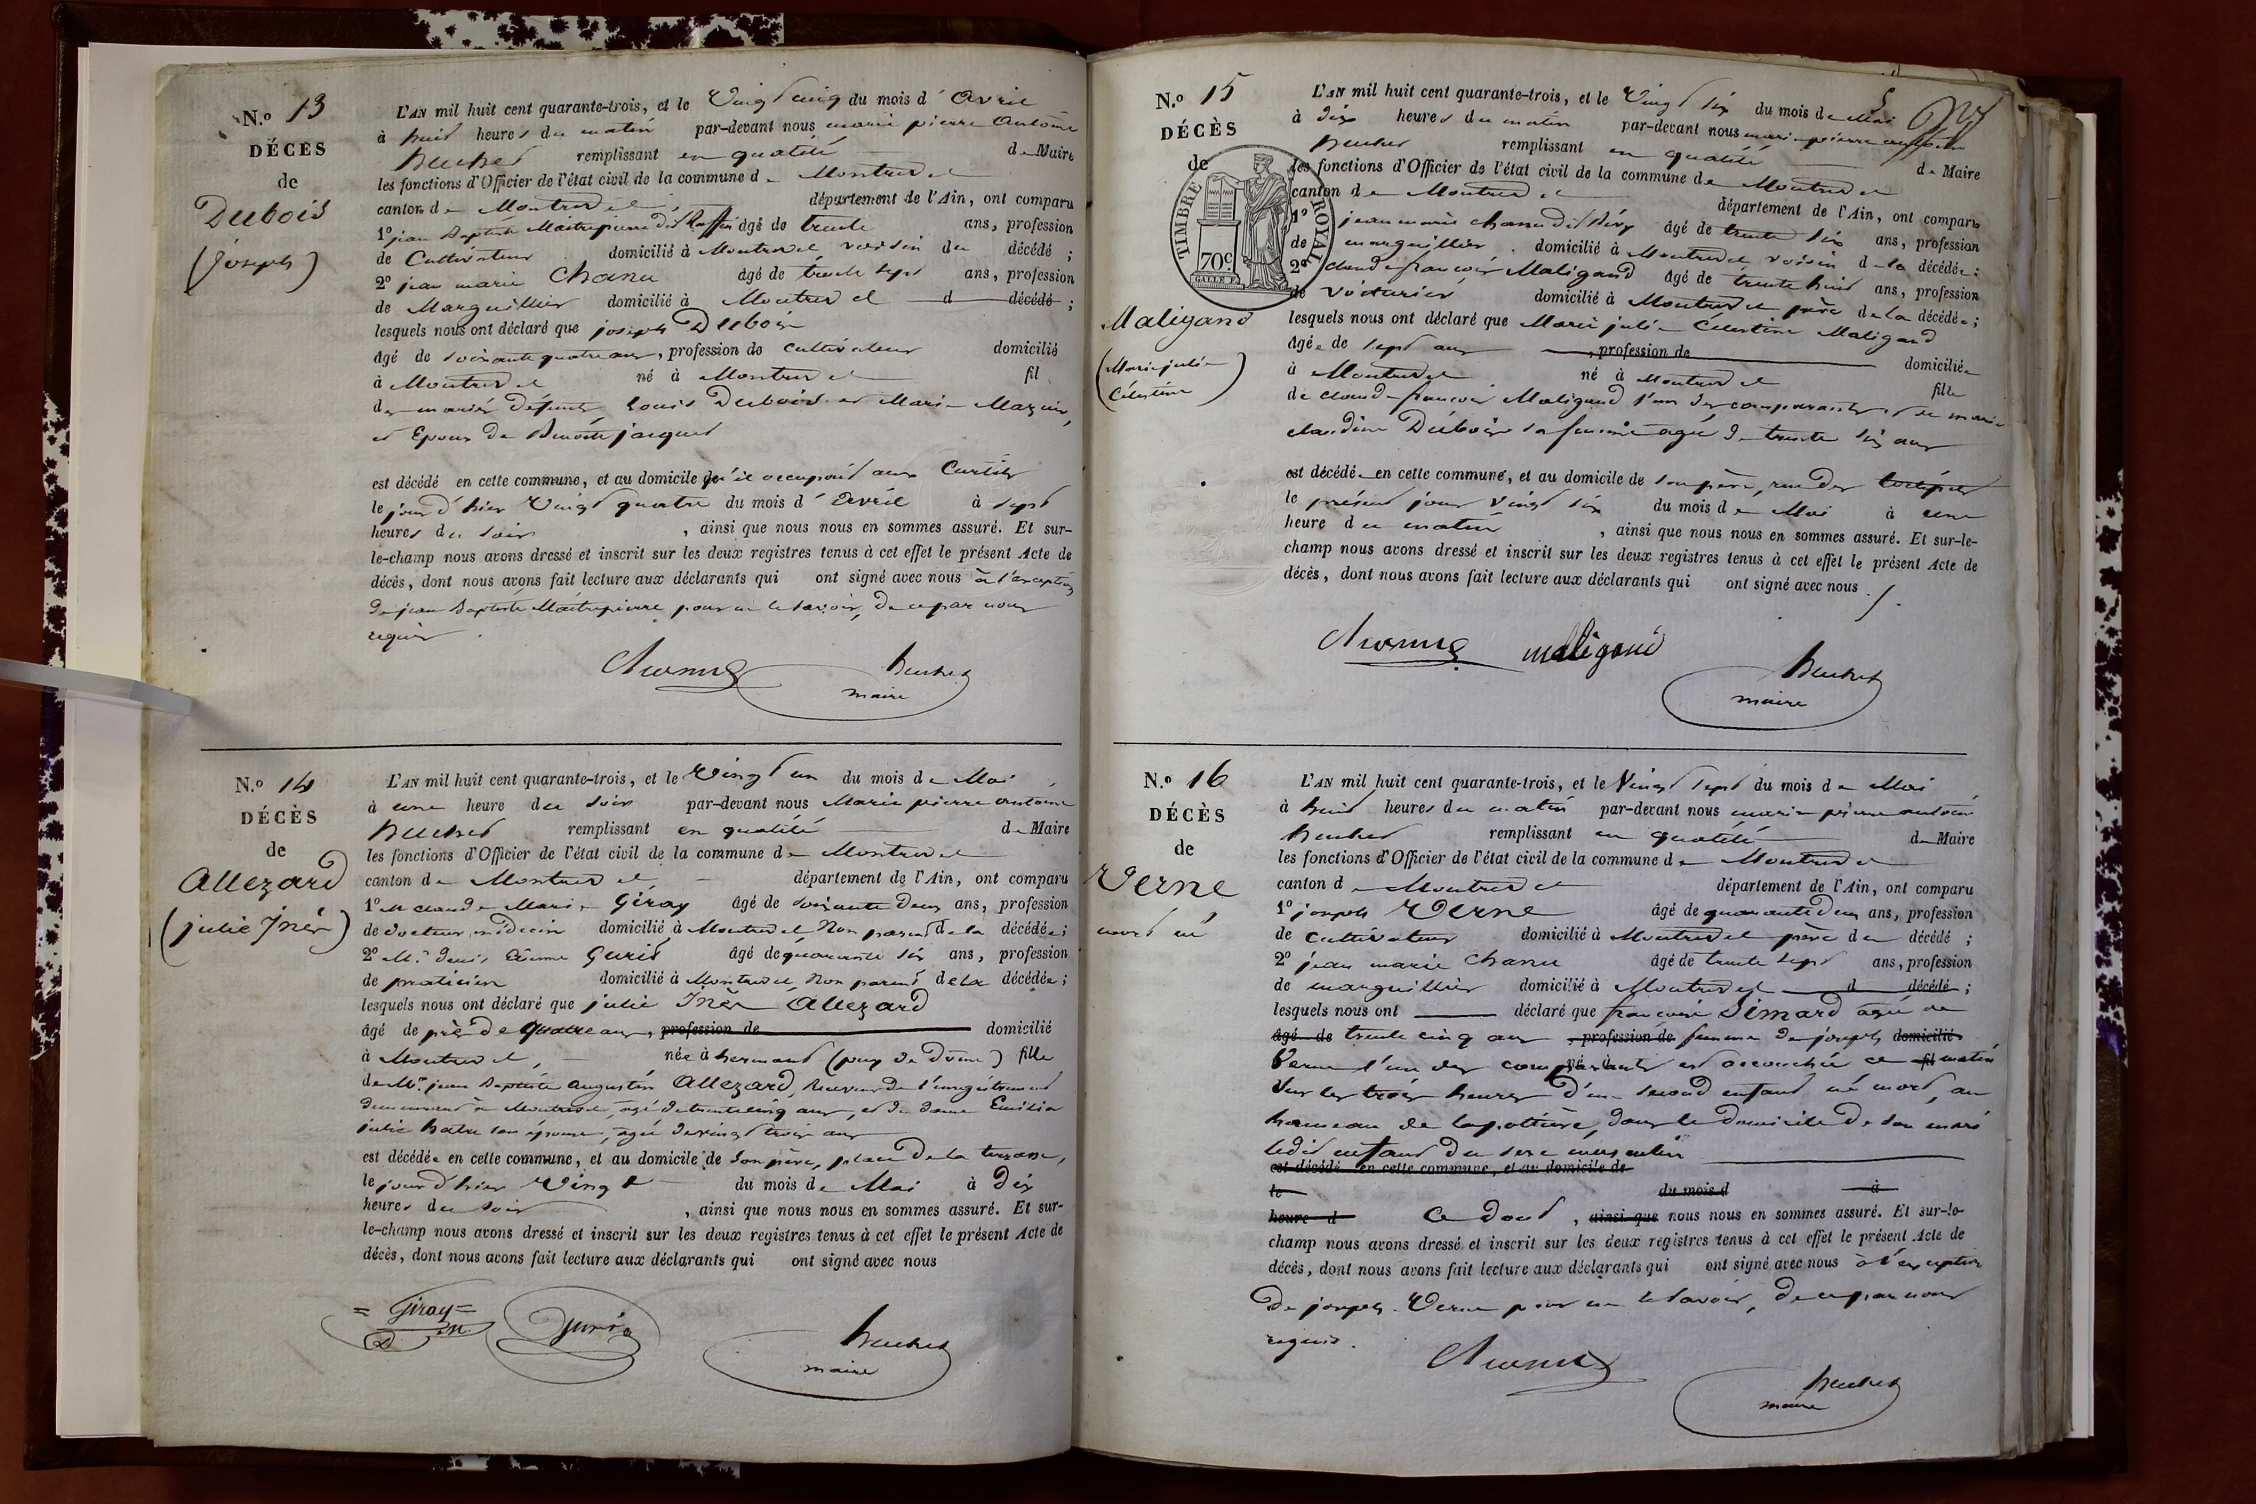 N.º 13
DÉCÈS
de
Dubois
(joseph)
L'AN mil huit cent quarante-trois, et le Vingt cinq du mois d'Avril
à huit heures du matin par-devant nous marie pierre Antoine
huchet remplissant en qualité de Maire
les fonctions d'Officier de l'état civil de la commune de Montrevel
canton de Montrevel département de l'Ain, ont comparu
1º jean Baptiste Maitrepierre dit âgé de trente ans, profession
de Cultivateur domicilié à Montrevel voisin du décédé ;
2º jean marie Chanu âgé de trente sept ans, profession
de Marguillier domicilié à Montrevel d décédé ;
lesquels nous ont déclaré que joseph Dubois
âgé de soixante quatre ans, profession de cultivateur domicilié
à Montrevel né à Montrevel fil
des mariés défunts Louis Dubois et Marie Mazuir,
et Epoux de Benoite jacquet
est décédé en cette commune, et au domicile qu'il occupait aux Curtils
le jour d'hier Vingt quatre du mois d'Avril à sept
heures du soir, ainsi que nous nous en sommes assuré. Et sur-
le-champ nous avons dressé et inscrit sur les deux registres tenus à cet effet le présent Acte de
décès, dont nous avons fait lecture aux déclarants qui ont signé avec nous à l'exception
de jean Baptiste Maitrepierre pour ne le savoir, de ce par nous
requis.
Chanu huchet
maire
N.º 14
DÉCÈS
de
Allezard
(julie Inès)
L'AN mil huit cent quarante-trois, et le Vingt un du mois de Mai
à une heure du soir par-devant nous Marie pierre antoine
huchet remplissant en qualité de Maire
les fonctions d'Officier de l'état civil de la commune de Montrevel
canton de Montrevel département de l'Ain, ont comparu
1º Mr claude Marie Giroy âgé de soixante deux ans, profession
de docteur médecin domicilié à Montrevel, Non parent de la décédée ;
2º Mr. denis Etienne Guris âgé de quarante six ans, profession
de praticien domicilié à Montrevel, Non parent de la décédée ;
lesquels nous ont déclaré que julie Inès Allezard
âgé de près de quatre ans, profession de domicilié
à Montrevel, née à hermant (puy de Dôme) fille
de Mr. jean Baptiste augustin Allezard, Receveur de l'enregistrement
demeurant à Montrevel, agé de trente cinq ans, et de dame Emilie
julie son épouse, agée de vingt trois ans
est décédée en cette commune, et au domicile de son père, place de la terrasse,
le jour d'hier Vingt du mois de Mai à Dix
heures du soir, ainsi que nous nous en sommes assuré. Et sur-
le-champ nous avons dressé et inscrit sur les deux registres tenus à cet effet le présent Acte de
décès, dont nous avons fait lecture aux déclarants qui ont signé avec nous
Giroy huchet
maire
N.º 15
DÉCÈS
de
TIMBRE ROYAL
70c
Maligand
(Marie julie
Célestine)
L'AN mil huit cent quarante-trois, et le Vingt six du mois de Mai
à dix heures du matin par-devant nous marie pierre antoine
huchet remplissant en qualité de Maire
les fonctions d'Officier de l'état civil de la commune de Montrevel
canton de Montrevel département de l'Ain, ont comparu
1º jean marie chanu dit âgé de trente six ans, profession
de marguillier domicilié à Montrevel voisin de la décédée ;
2º claude françois Maligand âgé de trente huit ans, profession
de voiturier domicilié à Montrevel père de la décédée ;
lesquels nous ont déclaré que Marie julie Célestine Maligand
âgée de sept ans, profession de domiciliée
à Montrevel né à Montrevel fille
de claude françois Maligand l'un des comparants et de marie
claudine Dubois sa femme agée de trente six ans
est décédée en cette commune, et au domicile de son père, rue des
le présent jour vingt six du mois de Mai à une
heure du matin, ainsi que nous nous en sommes assuré. Et sur-le-
champ nous avons dressé et inscrit sur les deux registres tenus à cet effet le présent Acte de
décès, dont nous avons fait lecture aux déclarants qui ont signé avec nous.
Chanu maligand huchet
maire
N.º 16
DÉCÈS
de
Verne
mort né
L'AN mil huit cent quarante-trois, et le Vingt sept du mois de Mai
à huit heures du matin par-devant nous marie pierre antoine
huchet remplissant en qualité de Maire
les fonctions d'Officier de l'état civil de la commune de Montrevel
canton de Montrevel département de l'Ain, ont comparu
1º joseph Verne âgé de quarante deux ans, profession
de cultivateur domicilié à Montrevel père du décédé ;
2º jean marie Chanu âgé de trente sept ans, profession
de marguillier domicilié à Montrevel d décédé ;
lesquels nous ont déclaré que françoise Simard agée de
âgé de trente cinq ans profession de femme de joseph domicilié
Verne l'un des comparants né à est accouchée ce fil matin
sur les trois heures d'un second enfant né mort, au
hameau de lapottière, dans le domicile de son mari
ledit enfant du sexe masculin
est décédé en cette commune, et au domicile de
le du mois d à
heure d Ce dont, ainsi que nous nous en sommes assuré. Et sur-le-
champ nous avons dressé et inscrit sur les deux registres tenus à cet effet le présent Acte de
décès, dont nous avons fait lecture aux déclarants qui ont signé avec nous à l'exception
De joseph Verne pour ne le savoir, de ce par nous
requis.
Chanu huchet
maire